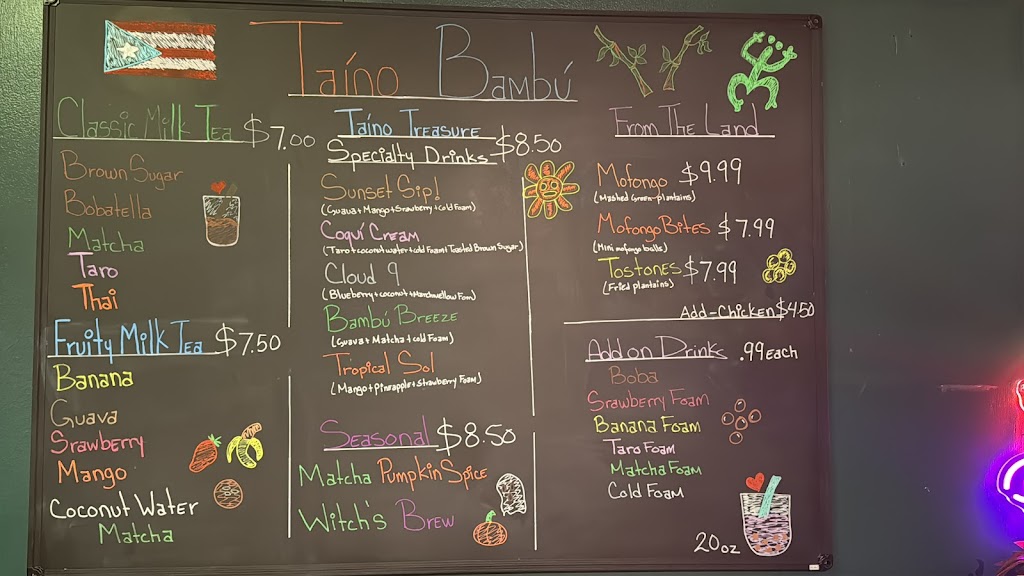 Taíno Bambú
Classic Milk Tea $7.00
Brown Sugar
Bobatella
Matcha
Taro
Thai
Fruity Milk Tea $7.50
Banana
Guava
Srawberry
Mango
Coconut Water
Matcha
Taíno Treasure
Specialty Drinks $8.50
Sunset Sip!
(Guava+Mango+Srawberry+Cold Foam)
Coquí Cream
(Taro+coconut water+cold Foam+Toasted Brown Sugar)
Cloud 9
(Blueberry+coconut+Marshmellow Foam)
Bambú Breeze
(Guava+Matcha+cold Foam)
Tropical Sol
(Mango+pineapple+strawberry Foam)
Seasonal $8.50
Matcha Pumpkin Spice
Witch's Brew
From The Land
Mofongo $9.99
(Mashed Green-plantains)
Mofongo Bites $7.99
(Mini mofongo balls)
Tostones $7.99
(Fried plantains)
Add-Chicken $4.50
Add on Drink .99 each
Boba
Srawberry Foam
Banana Foam
Taro Foam
Matcha Foam
Cold Foam
20oz